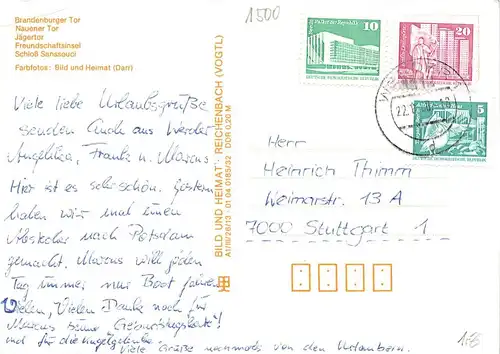 Brandenburger Tor
Nauener Tor
Jägertor
Freundschaftsinsel
Schloß Sanssouci
Farbfotos: Bild und Heimat (Darr)
1500
Viele liebe Urlaubsgrüße
senden Euch aus Werder
Angelika, Frank u. Marcus.
Hier ist es sehr schön. Gestern
haben wir mal einen
Abstecher nach Potsdam
gemacht. Marcus will jeden
Tag immer nur Boot fahren.
Vielen, Vielen Dank noch für
Marcus seine Geburtstagskarte!
und für die
Viele Grüße nochmals von den Urlaubern.
BILD UND HEIMAT · REICHENBACH (VOGTL)
A1/III/26/13 · 01 04 0165/32 DDR 0,20 M
Palast der Republik
10
20
5
22.
Herrn
Heinrich Thimm
Weimarstr. 13 A
7000 Stuttgart 1